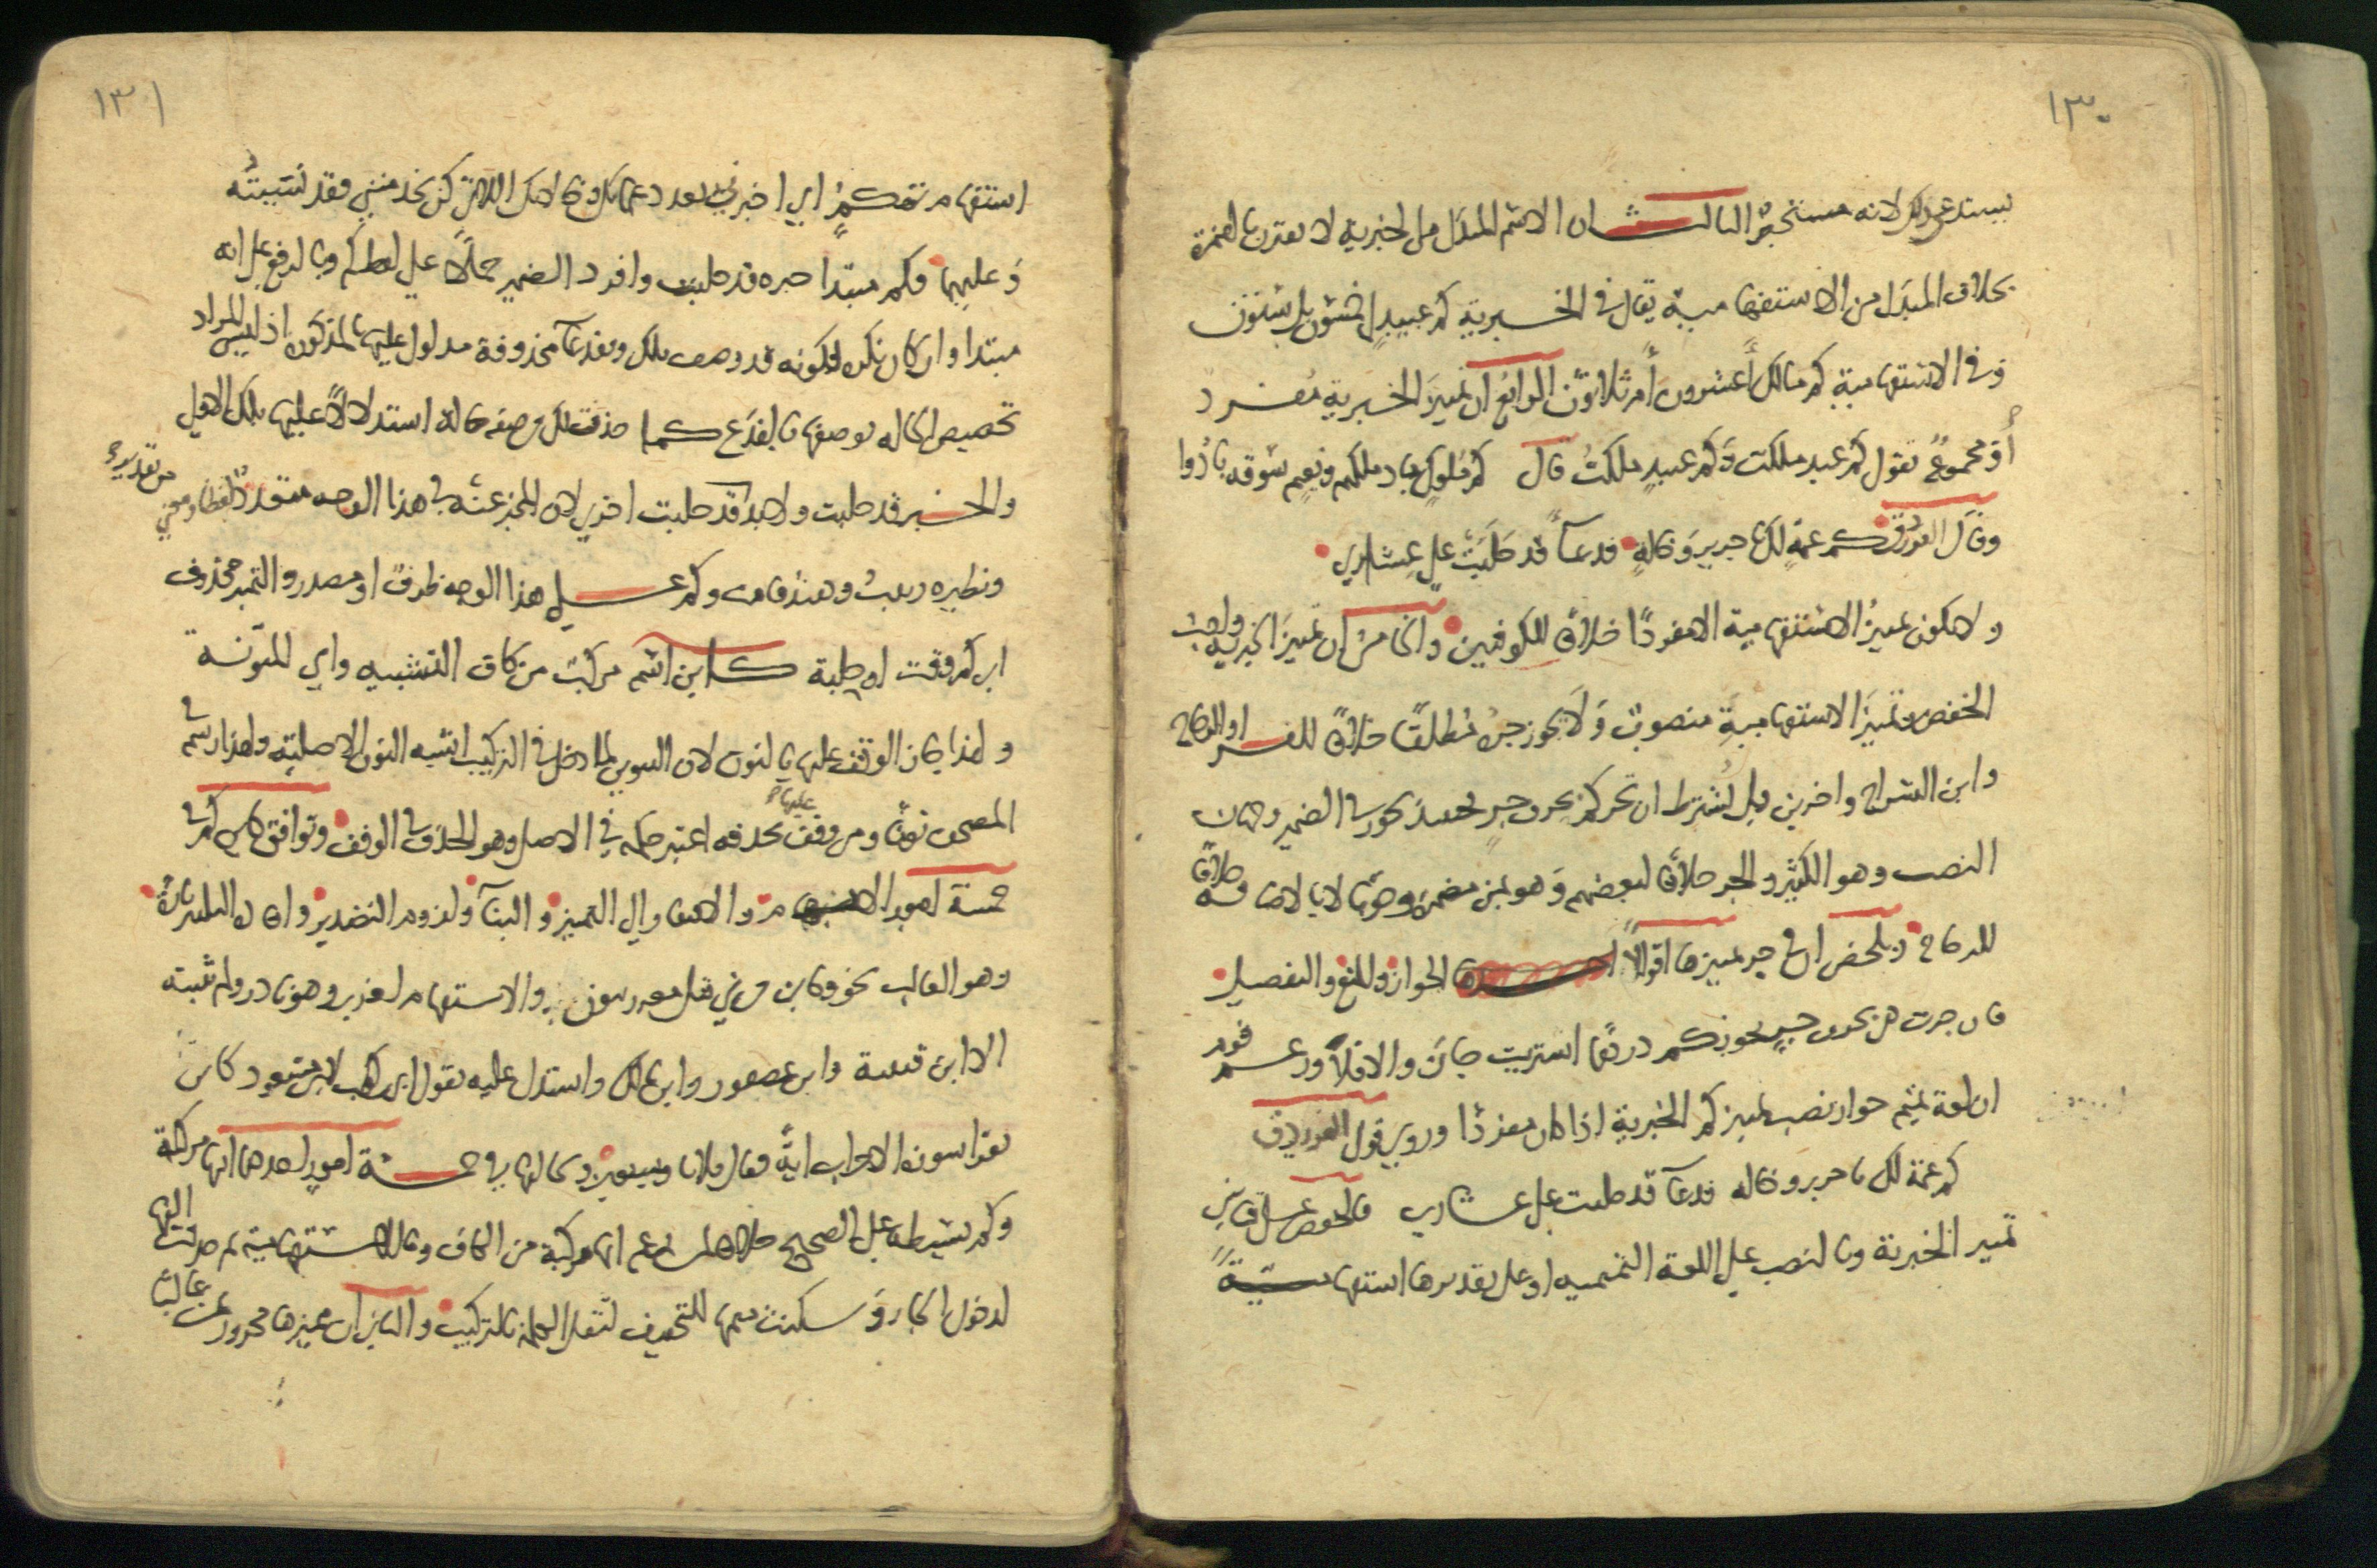 ١٣٠
يستدعي ذلك لانه مستخبرٌ الثالث ان الاسم المبدل من الخبرية لا يقترن بالهمزة
بخلاف المبدَل من الاستفهامية يقال في الخبرية كم عبيدٍ لي خمسون بل ستون
وفي الاستفهامية كم مالك أعشرون أم ثلاثون الرابع ان تمييزَ الخبرية مفرد
أو مجموع تقول كم عبدٍ ملكت وكم عبيدٍ ملكتُ قال كم ملوكٍ باد ملكهم ونعيم سوقة بادُوا
وقال الفرزدق كم عمةٍ لك يا جرير وخالةٍ فدعآ قد حلبت علي عشاري
ولا يكون تمييزُ الاستفهامية الا مفردًا خلافًا للكوفيين والخامس ان تمييز الخبرية واجب
الخفض وتمييزَ الاستفهاميةِ منصوبٌ ولا يجوز جره مُطلقًا خلافًا للفرا والزجاج
وابن السراج واخرين بل يُشترط ان تجر كم بحرف جرٍ فحينئذ يجوز في التمييز وجهان
النصب وهو الكثير والجر خلافًا لبعضهم وهو بمن مضمرة وجوبًا لا بالاضافة خلافًا
للزجاج وتلخص ان في جر تمييزها اقوالًا الجواز والمنع والتفصيل
فان جرت هي بحرف جرٍ نحو بكم درهمًا اشتريت جاز والا فلا وزعم قوم
ان لغة تميم جواز نصب تمييز كم الخبرية اذا كان مفردًا وروي قول الفرزدق
كم عمة لك يا جرير وخالة فدعآ قد حلبت علي عشاري فالخفض علي قياس
تمييز الخبرية وبالنصب علي اللغة التميمية او علي تقديرها استفهامية
١٣١
استفهام تهكم اي اخبرني بعدد عماتك وخالاتك اللاتي كن يخدمنني فقد نسيته
وعليهما فكم مبتدا خبره قد حلبت وافرد الضمير حملاً علي لفظ كم وبالرفع علي انه
مبتدا وان كان نكرة لكونه قد وصف بلك وبفدعآ محذوفة مدلول عليها بالمذكورة اذ ليس المراد
تخصيص الخالة بوصفها بالفدع كما حذفت لك من صفة خالة استدلالاً عليها بلك الاولي
والخبر قد حلبت ولابد من تقدير قد حلبت اخري لان المخبر عنه في هذا الوجه متعدد لفظا ومعني
ونظيره زينب وهند قامت وكم علي هذا الوجه ظرف او مصدر والتمييز محذوف
اي كم وقت او حلبة كاين اسم مركب من كاف التشبيه واي المنونة
ولهذا جاز الوقف عليها بالنون لان التنوين لما دخل في التركيب اشبه النون الاصلية ولهذا رسم في
المصحف نونًا ومن وقف عليها بحذفه اعتبر حكمه في الاصل وهو الحذف في الوقف وتوافق كاين كم في
خمسة امور الابهام والافتقار الي التمييز والبنآ ولزوم التصدير وافادة التكثير تارة
وهو الغالب نحو وكاين من نبي قتل معه ربيون والاستفهام اخري وهو نادر ولم يثبته
الا ابن قتيبة وابن عصفور وابن مالك واستدل عليه بقول ابي بن كعب لابن مسعود كاين
تقرا سورة الاحزاب اية فقال ثلاثا وسبعين وتخالفها في خمسة امور احدها انها مركبة
وكم بسيطة علي الصحيح خلافا لمن زعم انها مركبة من الكاف وما الاستفهامية ثم حذفت الفها
لدخول الجار وسكنت ميمها للتخفيف لثقل الكلمة بالتركيب والثاني ان مميزها مجرور بمن غالبًا